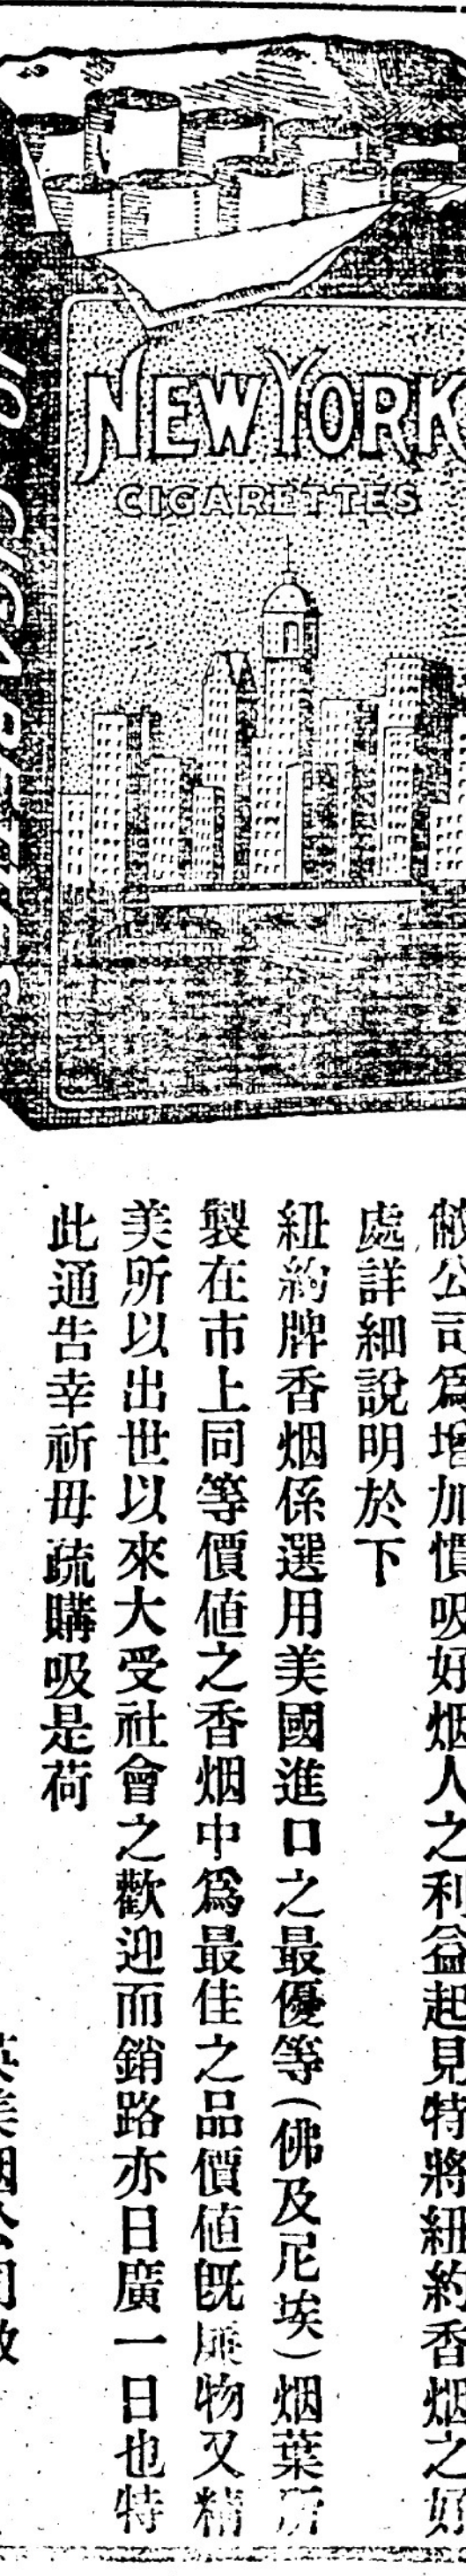 NEW YORK
CIGARETTES
敝公司爲增加慣吸好烟人之利益起見特將紐約香烟之好
處詳細説明於下
紐約牌香烟係選用美國進口之最優等(佛及尼埃)烟葉所
製在市上同等價値之香烟中爲最佳之品價値旣廉物又精
美所以出世以來大受社會之歡迎而銷路亦日廣一日也特
此通告幸祈毋疏購吸是荷
英美烟公司啟